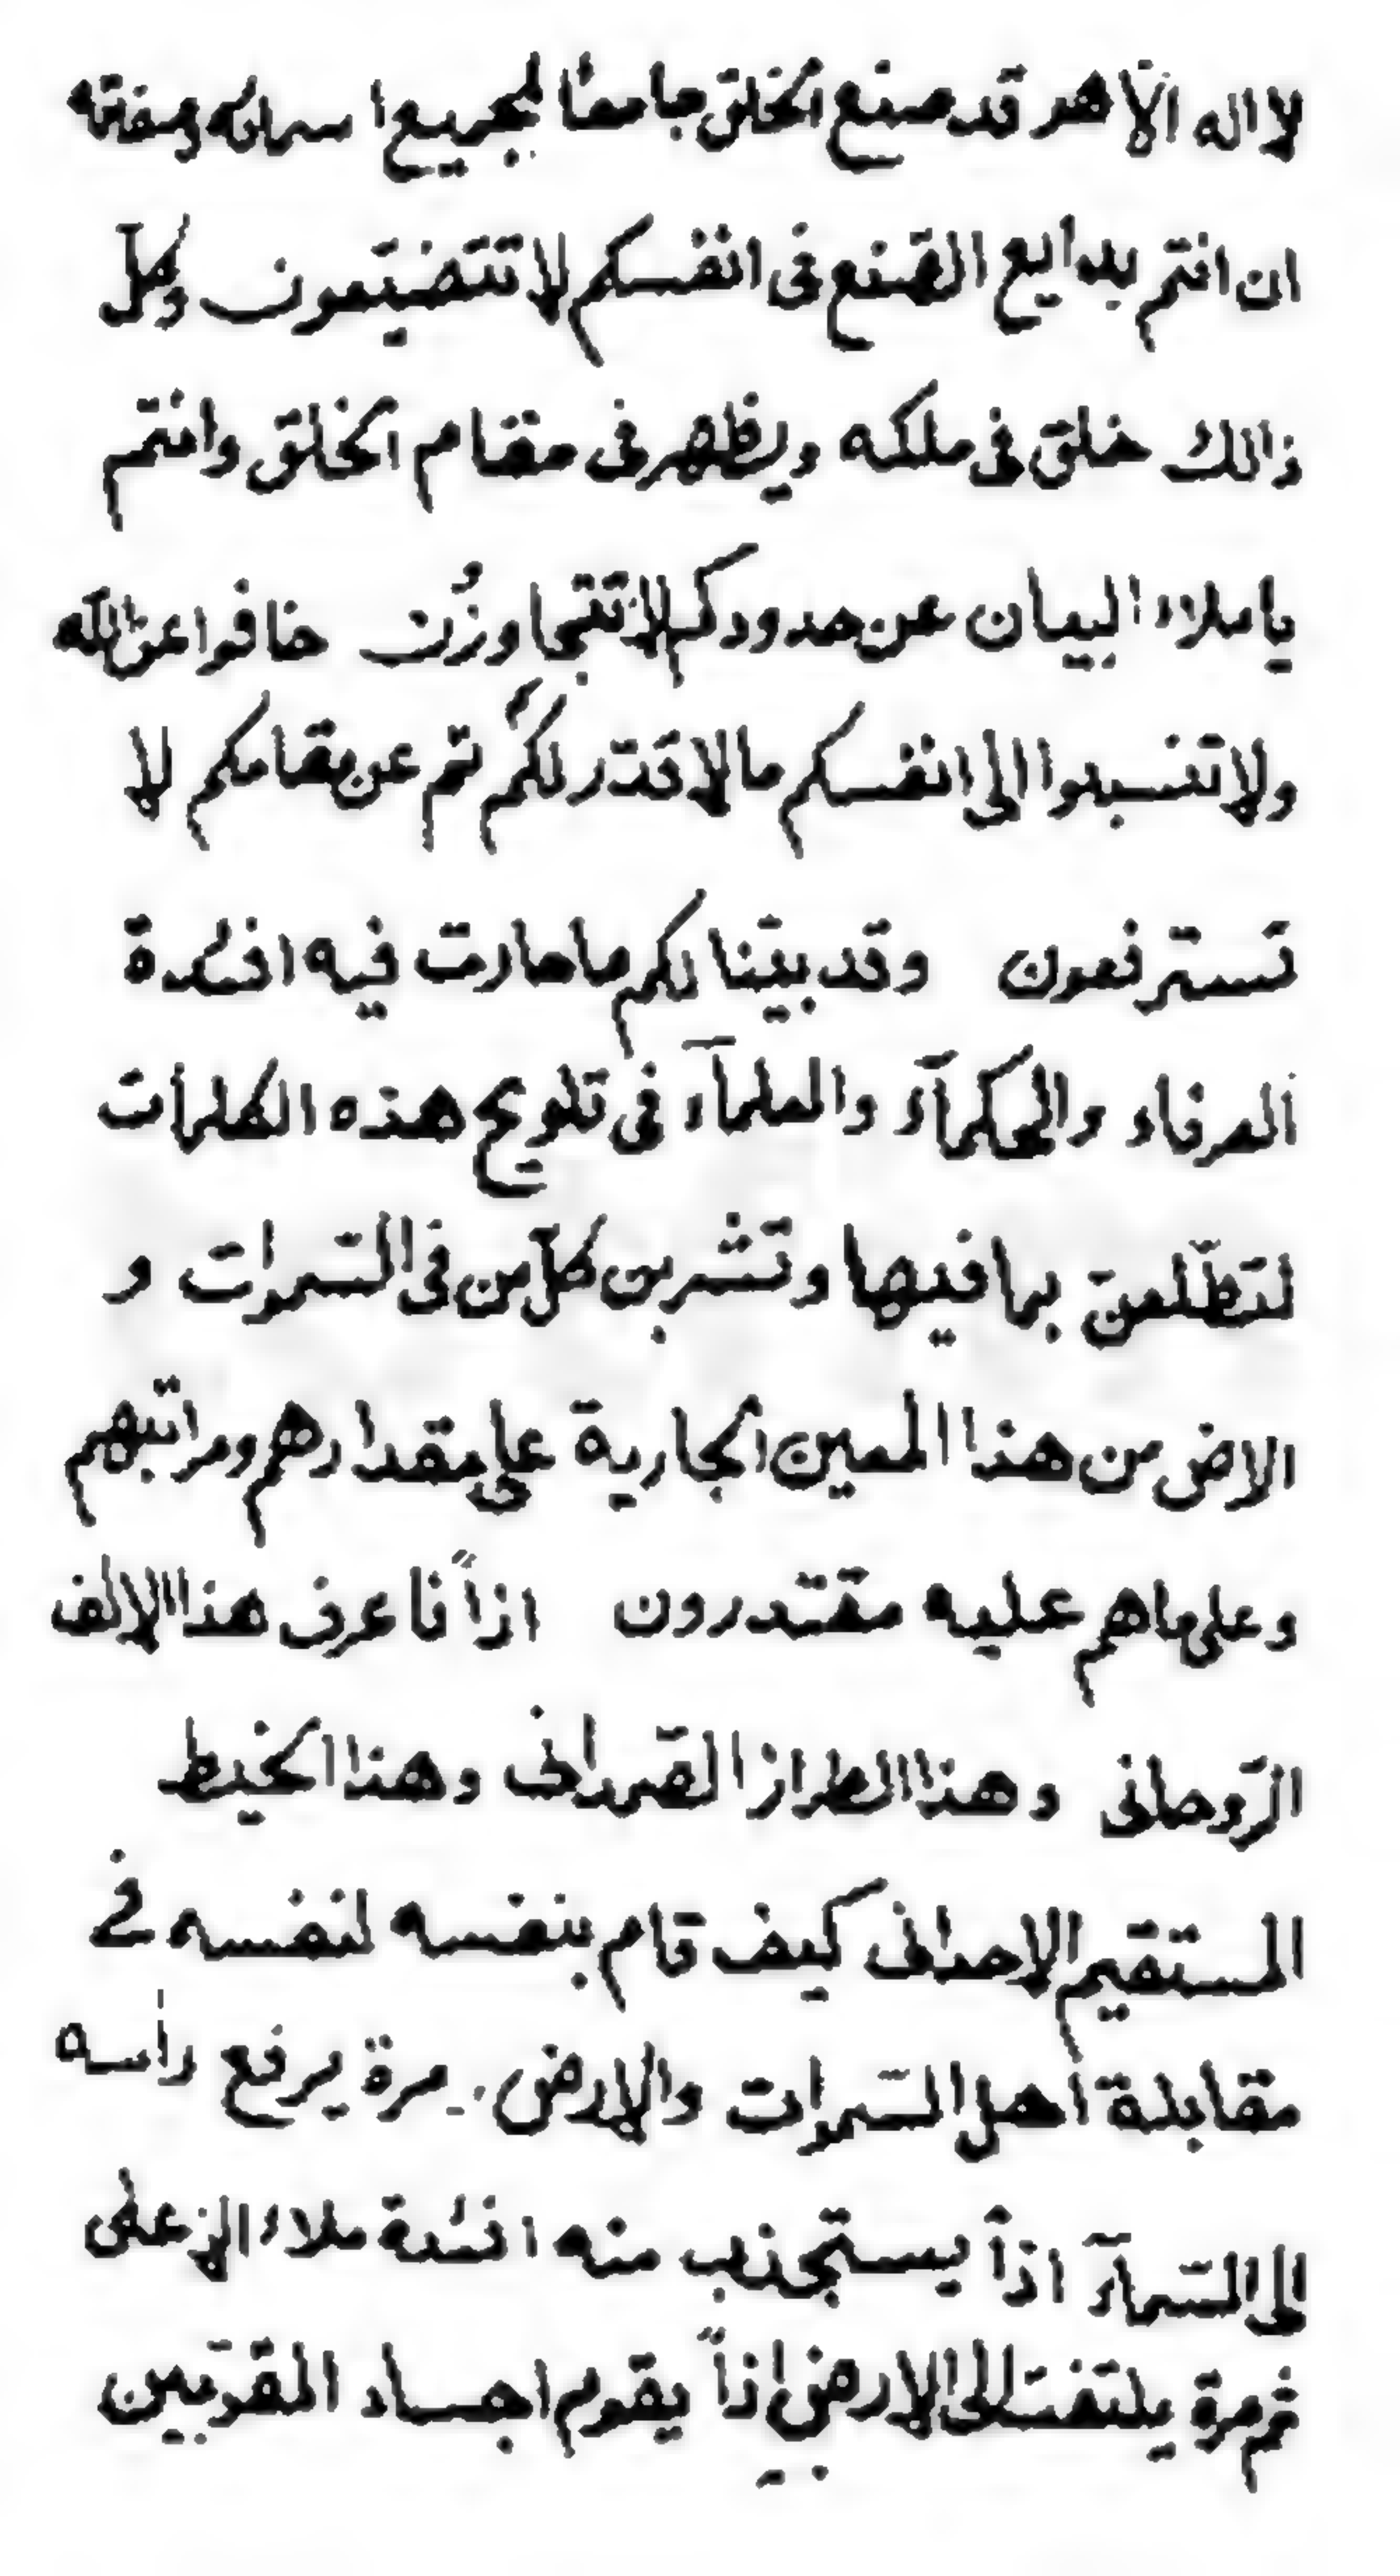 لا اله الّا هو قد صنع الخلق جامعًا لجميع اسمائه وصفاته
ان انتم ببدايع الصّنع فى انفسكم لا تتضيّعون وكلّ
ذالك خلق فى ملكه ويظهر فى مقام الخلق وانتم
يا ملاء البيان عن حدودكم لا تتجاوزُن خافوا عن الله
ولا تنسبوا الى انفسكم ما لا قدّر لكم ثم عن مقامكم لا
تسترفعون وقد بيّنا لكم ما حارت فيه افئدة
العرفاء والحكمآء والعلمآء فى تلويح هذه الكلمات
لتطّلعنّ بما فيها وتشربن كلّ من فى السّموات و
الارض من هذا المعين الجارية على مقدارهم ومراتبهم
وعلى ما هم عليه مقتدرون اذاً فاعرف هذا الالف
الرّوحانى وهذا الطراز الصّمدانى وهذا الخيط
المستقيم الاحدانى كيف قام بنفسه لنفسه فى
مقابلة اهل السّموات والارض. مرة يرفع راسه
الى السّمآء اذاً يستجذب منه افئدة ملاء الاعلى
ثم مرة يلتفت الى الارض اذاً يقوم اجساد المقرّبين